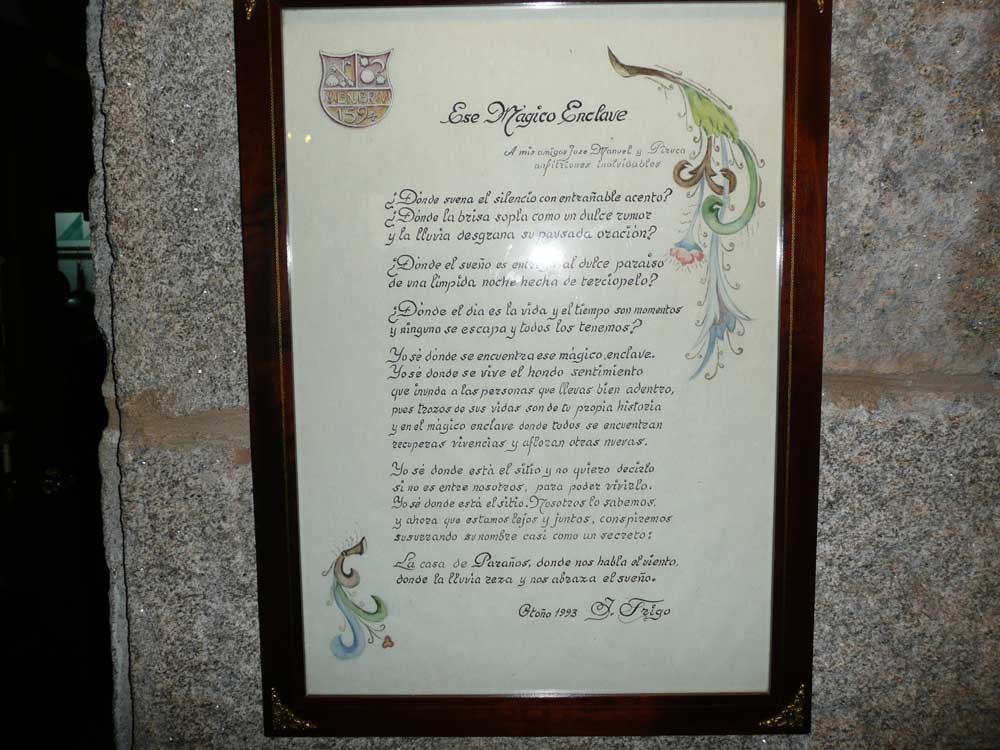 VENERA
1594
Ese Mágico Enclave
A mis amigos Jose Manuel y Piruca
anfitriones inolvidables
¿Dónde suena el silencio con entrañable acento?
¿Dónde la brisa sopla como un dulce rumor
y la lluvia desgrana su pausada oración?
¿Dónde el sueño es al dulce paraiso
de una límpida noche hecha de terciopelo?
¿Dónde el dia es la vida y el tiempo son momentos
y ninguno se escapa y todos los tenemos?
Yo sé dónde se encuentra ese mágico enclave.
Yo sé donde se vive el hondo sentimiento
que inunda a las personas que llevas bien adentro,
pues trozos de sus vidas son de tu propia historia
y en el mágico enclave donde todos se encuentran
recuperas vivencias y afloran otras nuevas.
Yo sé donde está el sitio y no quiero decirlo
si no es entre nosotros, para poder vivirlo.
Yo sé donde está el sitio. Nosotros lo sabemos,
y ahora que estamos lejos y juntos, conspiremos
susurrando su nombre casi como un secreto:
La casa de Paraños, donde nos habla el viento,
donde la lluvia reza y nos abraza el sueño.
Otoño 1993 J. Trigo